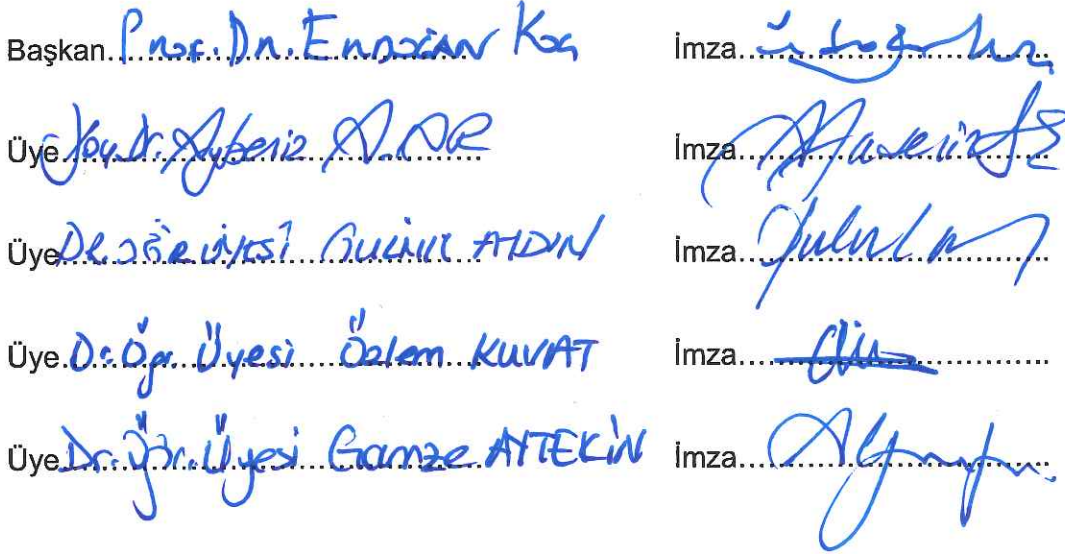 Başkan Prof. Dr. Erdoğan Koç İmza
Üye Doç. Dr. Ayberiz A. AR İmza
Üye Dr. ÖĞR ÜYESİ AYDIN İmza
Üye Dr. Öğr. Üyesi Özlem KUVAT İmza
Üye Dr. Öğr. Üyesi Gamze AYTEKİN İmza